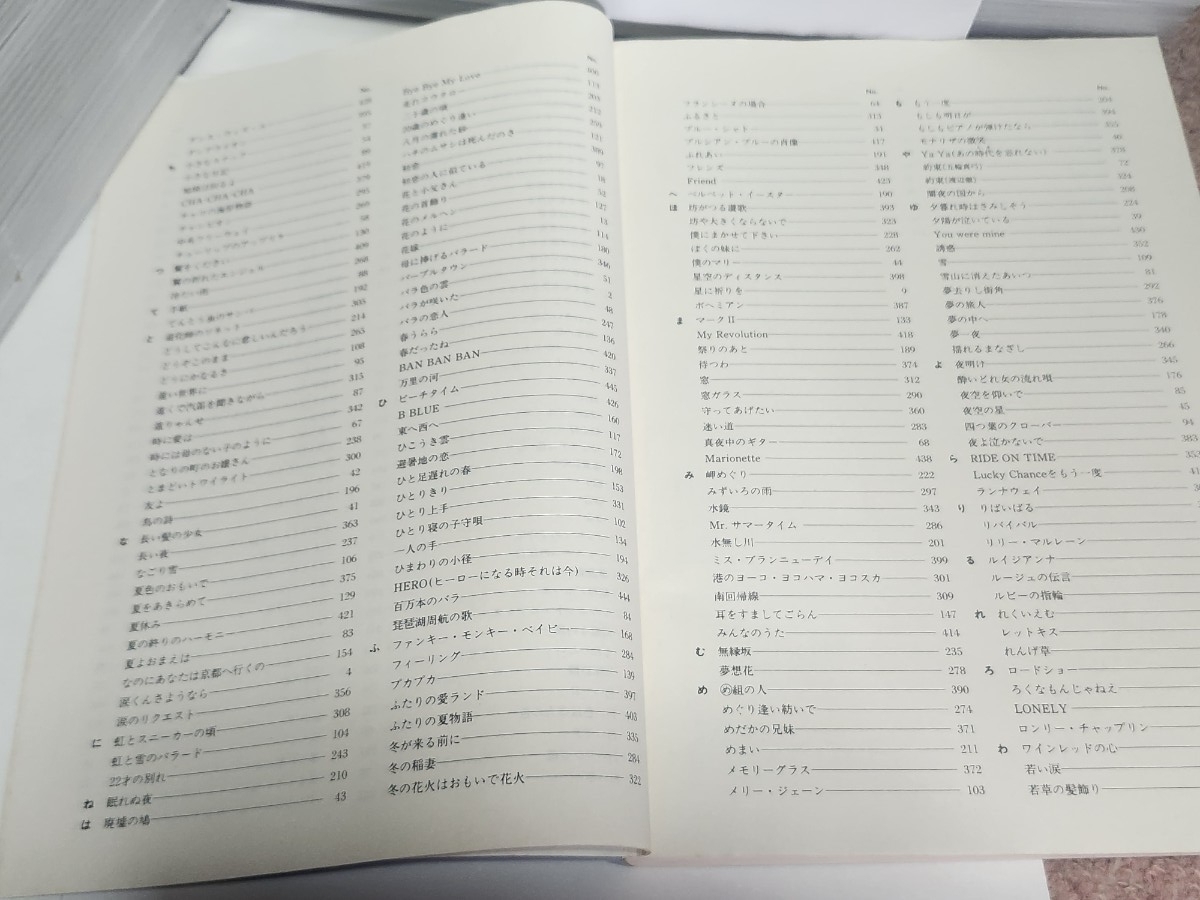 No.
CHA-CHA-CHA
翼をください
冷たい雨
手紙
てんとう虫のサンバ 303
と 道化師のソネット 214
どうしてこんなに悲しいんだろう 265
どうぞこのまま 108
どうにかなるさ 95
遠い世界に 315
遠くで汽笛を聞きながら 87
通りゃんせ 342
時に愛は 67
時には母のない子のように 238
となりの町のお嬢さん 300
とまどいトワイライト 42
友よ 196
鳥の詩 41
な 長い髪の少女 363
長い夜 237
なごり雪 106
夏色のおもいで 375
夏をあきらめて 129
夏休み 421
夏の終りのハーモニー 83
夏よおまえは 154
なのにあなたは京都へ行くの 4
涙くんさようなら 356
涙のリクエスト 308
に 虹とスニーカーの頃 104
虹と雪のバラード 243
22才の別れ 210
ね 眠れぬ夜 43
は 廃墟の鳩
No.
Bye Bye My Love
走れコウタロー
二十歳の頃
20歳のめぐり逢い
八月の濡れた砂
ハチのムサシは死んだのさ
初恋
初恋の人に似ている
花と小父さん
花の首飾り
花のメルヘン
花のように
花嫁
母に捧げるバラード 180
パープルタウン 346
バラ色の雲 51
バラが咲いた 2
バラの恋人 48
春うらら 247
春だったね 136
BAN BAN BAN 420
万里の河 337
ひ ピーチタイム 445
B BLUE 426
東へ西へ 160
ひこうき雲 117
避暑地の恋 172
ひと足遅れの春 198
ひとりきり 153
ひとり上手 331
ひとり寝の子守唄 102
一人の手 134
ひまわりの小径 194
HERO(ヒーローになる時それは今) 326
百万本のバラ 444
琵琶湖周航の歌 84
ふ ファンキー・モンキー・ベイビー 168
フィーリング 284
プカプカ 139
ふたりの愛ランド 397
ふたりの夏物語 403
冬が来る前に 335
冬の稲妻 284
冬の花火はおもいで花火 322
No.
フランシーヌの場合 64
ふるさと 313
ブルー・シャトー 31
プルシアン・ブルーの肖像 417
ふれあい 191
フレンズ 348
Friend 423
へ ベルベット・イースター 190
ほ 坊がつる讃歌 393
坊や大きくならないで 323
僕にまかせて下さい 228
ぼくの妹に 262
僕のマリー 44
星空のディスタンス 398
星に祈りを 9
ボヘミアン 387
ま マークII 133
My Revolution 418
祭りのあと 189
待つわ 374
窓 312
窓ガラス 290
守ってあげたい 360
迷い道 283
真夜中のギター 68
Marionette 438
み 岬めぐり 222
みずいろの雨 297
水鏡 343
Mr. サマータイム 286
水無し川 201
ミス・ブランニューデイ 399
港のヨーコ・ヨコハマ・ヨコスカ 301
南回帰線 309
耳をすましてごらん 147
みんなのうた 414
む 無縁坂 235
夢想花 278
め ㋱組の人 390
めぐり逢い紡いで 274
めだかの兄妹 371
めまい 211
メモリーグラス 372
メリー・ジェーン 103
No.
も もう一度 204
もしも明日が 394
もしもピアノが弾けたなら 355
モナリザの微笑 40
や Ya Ya(あの時代を忘れない) 378
約束(五輪真弓) 72
約束(渡辺徹) 324
闇夜の国から 208
ゆ 夕暮れ時はさみしそう 224
夕陽が泣いている 39
You were mine 430
誘惑 352
雪 109
雪山に消えたあいつ 81
夢去りし街角 292
夢の旅人 376
夢の中へ 178
夢一夜 340
揺れるまなざし 266
よ 夜明け 345
酔いどれ女の流れ唄 176
夜空を仰いで 85
夜空の星 45
四つ葉のクローバー 94
夜よ泣かないで 383
ら RIDE ON TIME 353
Lucky Chanceをもう一度
ランナウェイ
り りばいばる
リバイバル
リリー・マルレーン
る ルイジアンナ
ルージュの伝言
ルビーの指輪
れ れくいえむ
レットキス
れんげ草
ろ ロードショー
ろくなもんじゃねえ
LONELY
ロンリー・チャップリン
わ ワインレッドの心
若い涙
若草の髪飾り